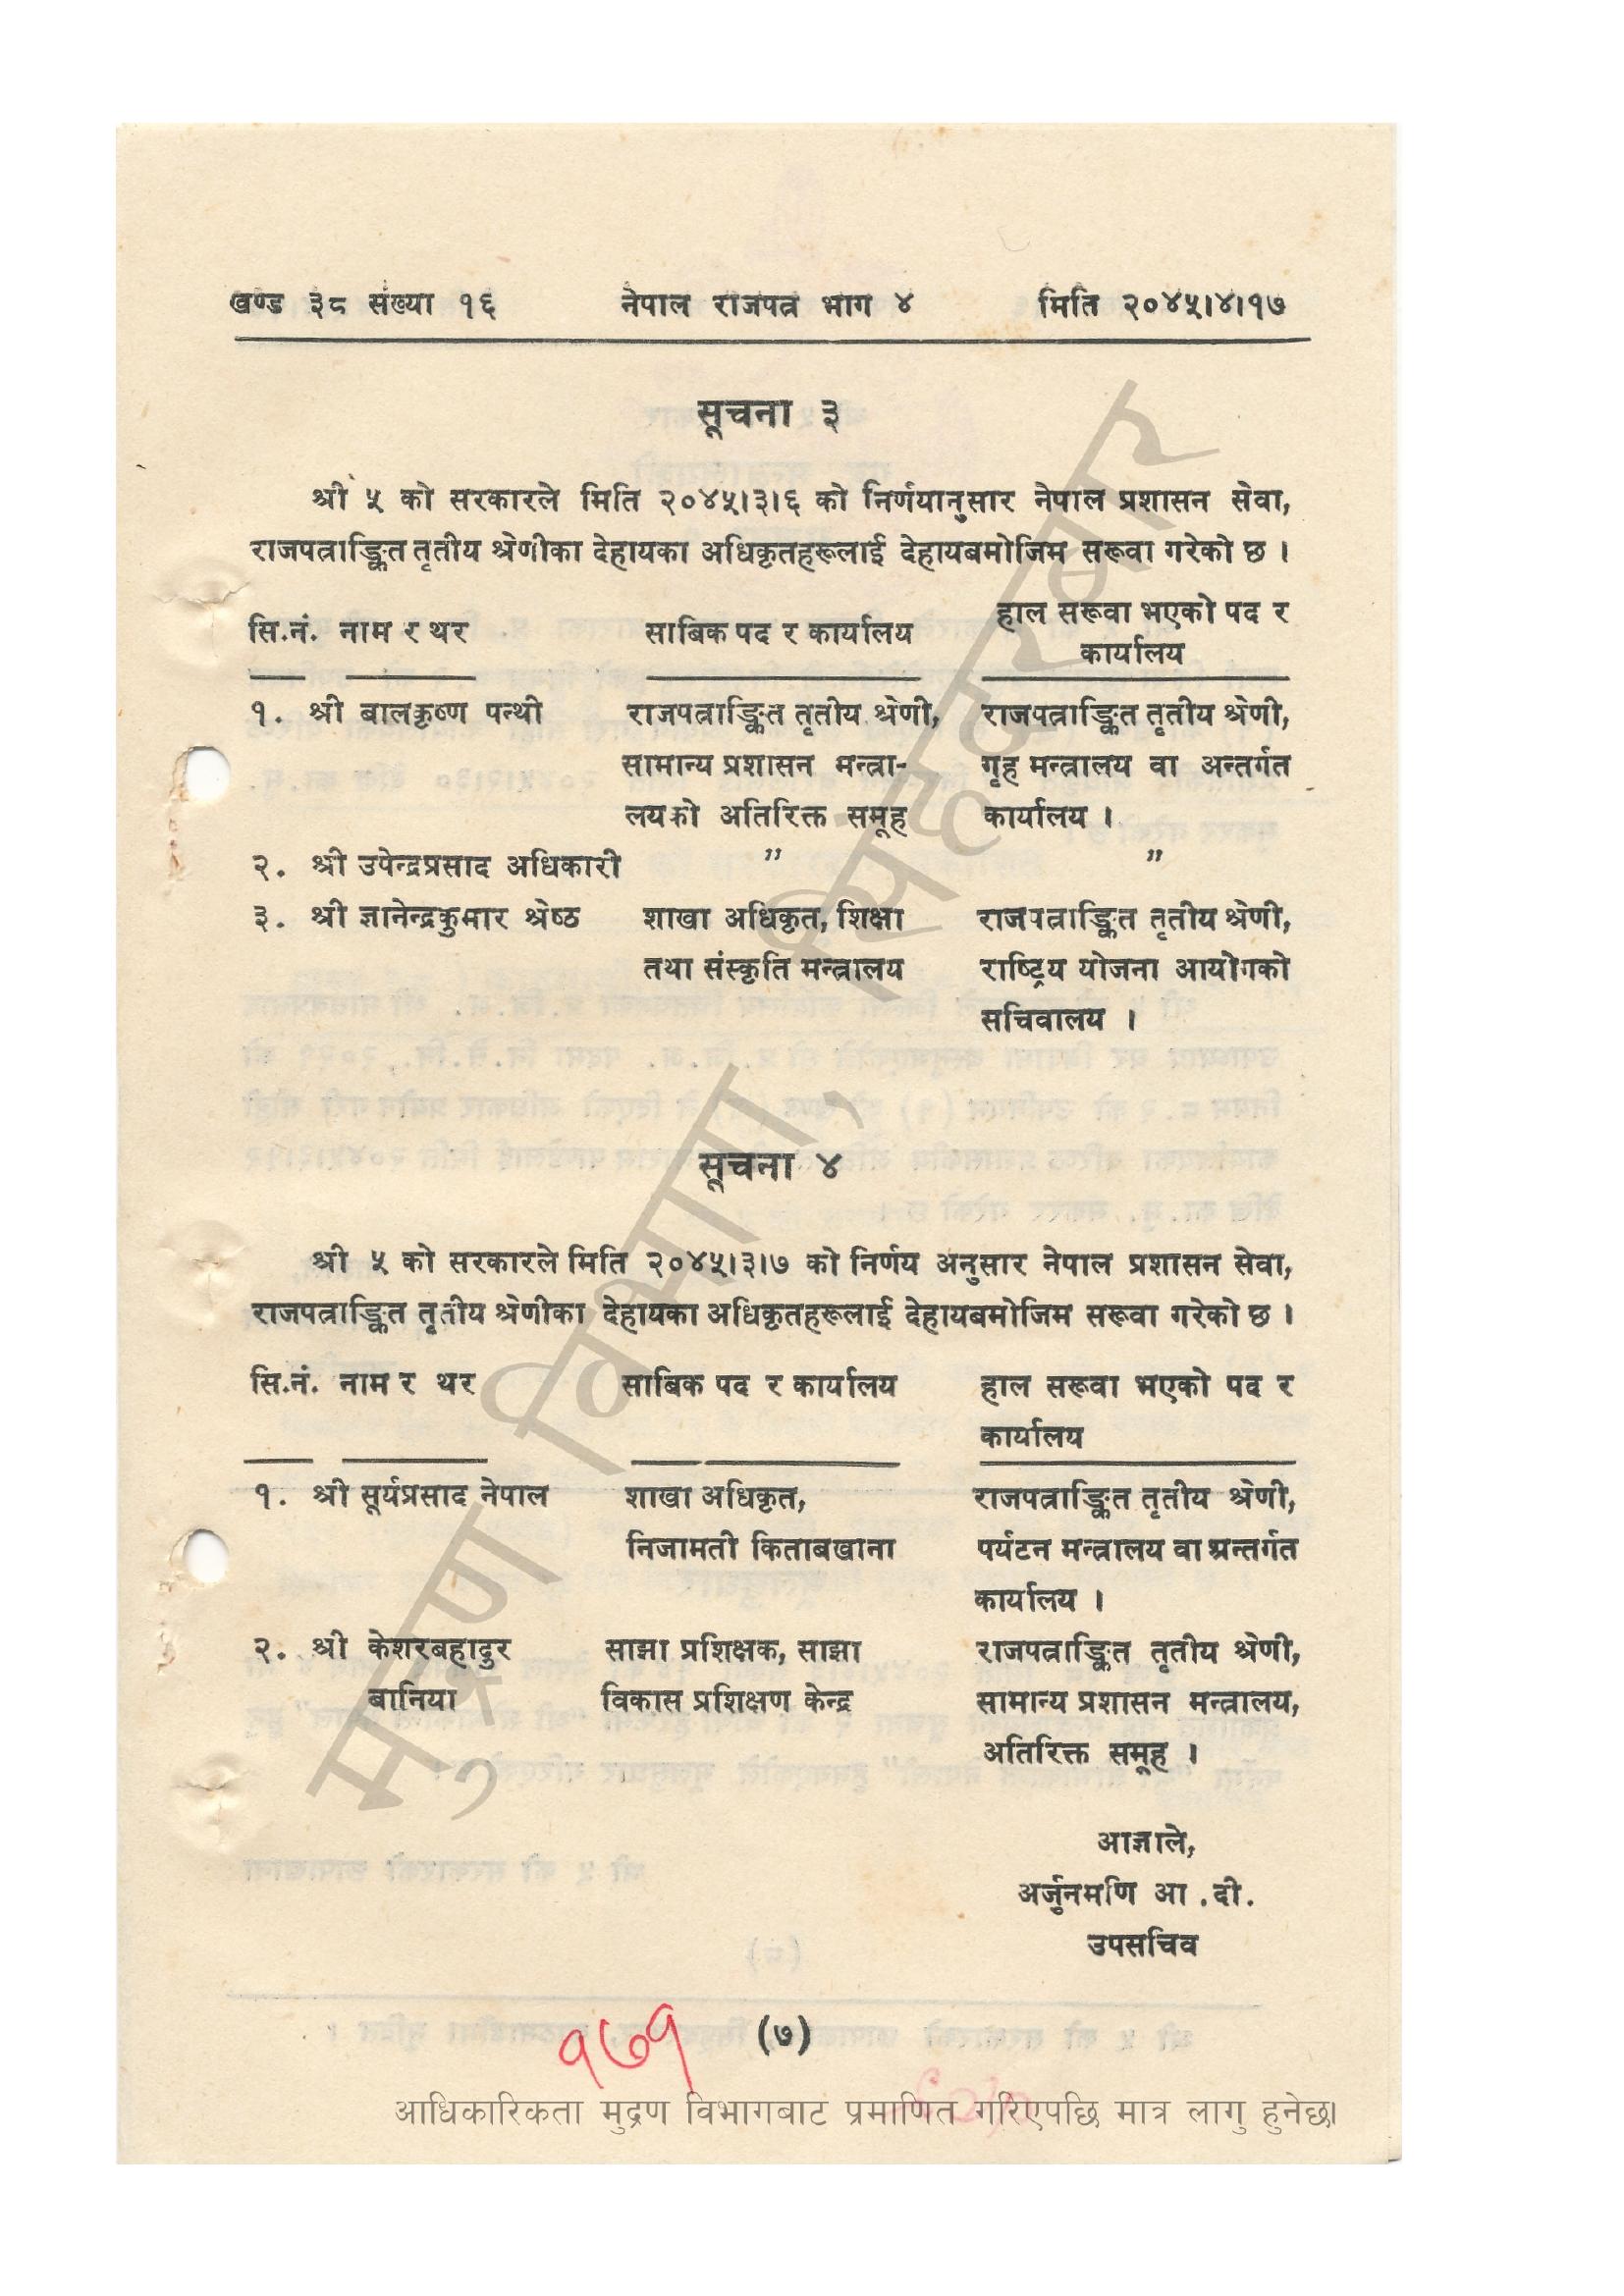 खण्ड ३८ संख्या १६ नेपाल राजपत्र भाग ४ मिति २०४५।४।१७
सूचना ३
श्री ५ को सरकारले मिति २०४५।३।६ को निर्णयानुसार नेपाल प्रशासन सेवा,
राजपत्राङ्कित तृतीय श्रेणीका देहायका अधिकृतहरूलाई देहायबमोजिम सरूवा गरेको छ ।
हाल सरूवा भएको पद र
सि.नं. नाम र थर साबिक पद र कार्यालय
कार्यालय
१. श्री बालकृष्ण पन्थी राजपत्राङ्कित तृतीय श्रेणी, राजपत्राङ्कित तृतीय श्रेणी,
सामान्य प्रशासन मन्त्रा- गृह मन्त्रालय वा अन्तर्गत
लयको अतिरिक्त समूह कार्यालय ।
२. श्री उपेन्द्रप्रसाद अधिकारी ” ”
३. श्री ज्ञानेन्द्रकुमार श्रेष्ठ शाखा अधिकृत, शिक्षा राजपत्राङ्कित तृतीय श्रेणी,
तथा संस्कृति मन्त्रालय राष्ट्रिय योजना आयोगको
सचिवालय ।
सूचना ४
श्री ५ को सरकारले मिति २०४५।३।७ को निर्णय अनुसार नेपाल प्रशासन सेवा,
राजपत्राङ्कित तृतीय श्रेणीका देहायका अधिकृतहरूलाई देहायबमोजिम सरूवा गरेको छ ।
सि.नं. नाम र थर साबिक पद र कार्यालय हाल सरूवा भएको पद र
कार्यालय
१. श्री सूर्यप्रसाद नेपाल शाखा अधिकृत, राजपत्राङ्कित तृतीय श्रेणी,
निजामती किताबखाना पर्यटन मन्त्रालय वा अन्तर्गत
कार्यालय ।
२. श्री केशरबहादुर साझा प्रशिक्षक, साझा राजपत्राङ्कित तृतीय श्रेणी,
बानिया विकास प्रशिक्षण केन्द्र सामान्य प्रशासन मन्त्रालय,
अतिरिक्त समूह ।
आज्ञाले,
अर्जुनमणि आ .दी.
उपसचिव
१७१ (७)
आधिकारिकता मुद्रण विभागबाट प्रमाणित गरिएपछि मात्र लागु हुनेछ।
मुद्रण विभाग, सिंहदरबार